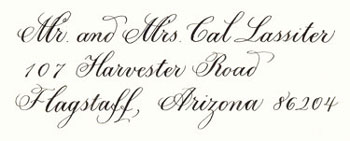 Mr. and Mrs. Cal Lassiter
107 Harvester Road
Flagstaff, Arizona 86204